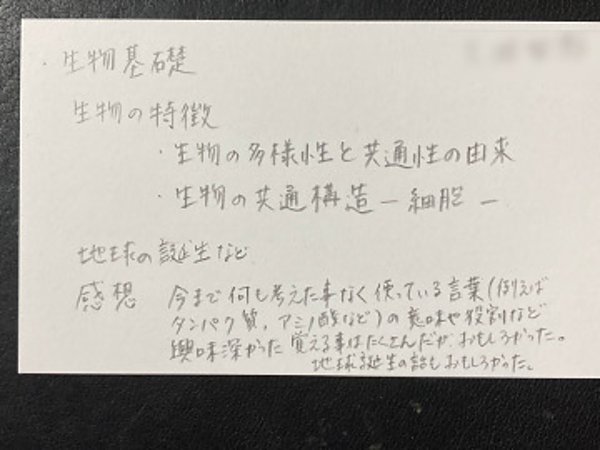 ・生物基礎
生物の特徴
・生物の多様性と共通性の由来
・生物の共通構造 ー細胞ー
地球の誕生など
感想 今まで何も考えた事なく使っている言葉(例えば
タンパク質、アミノ酸など)の意味や役割など
興味深かった 覚える事はたくさんだが、おもしろかった。
地球誕生の話もおもしろかった。